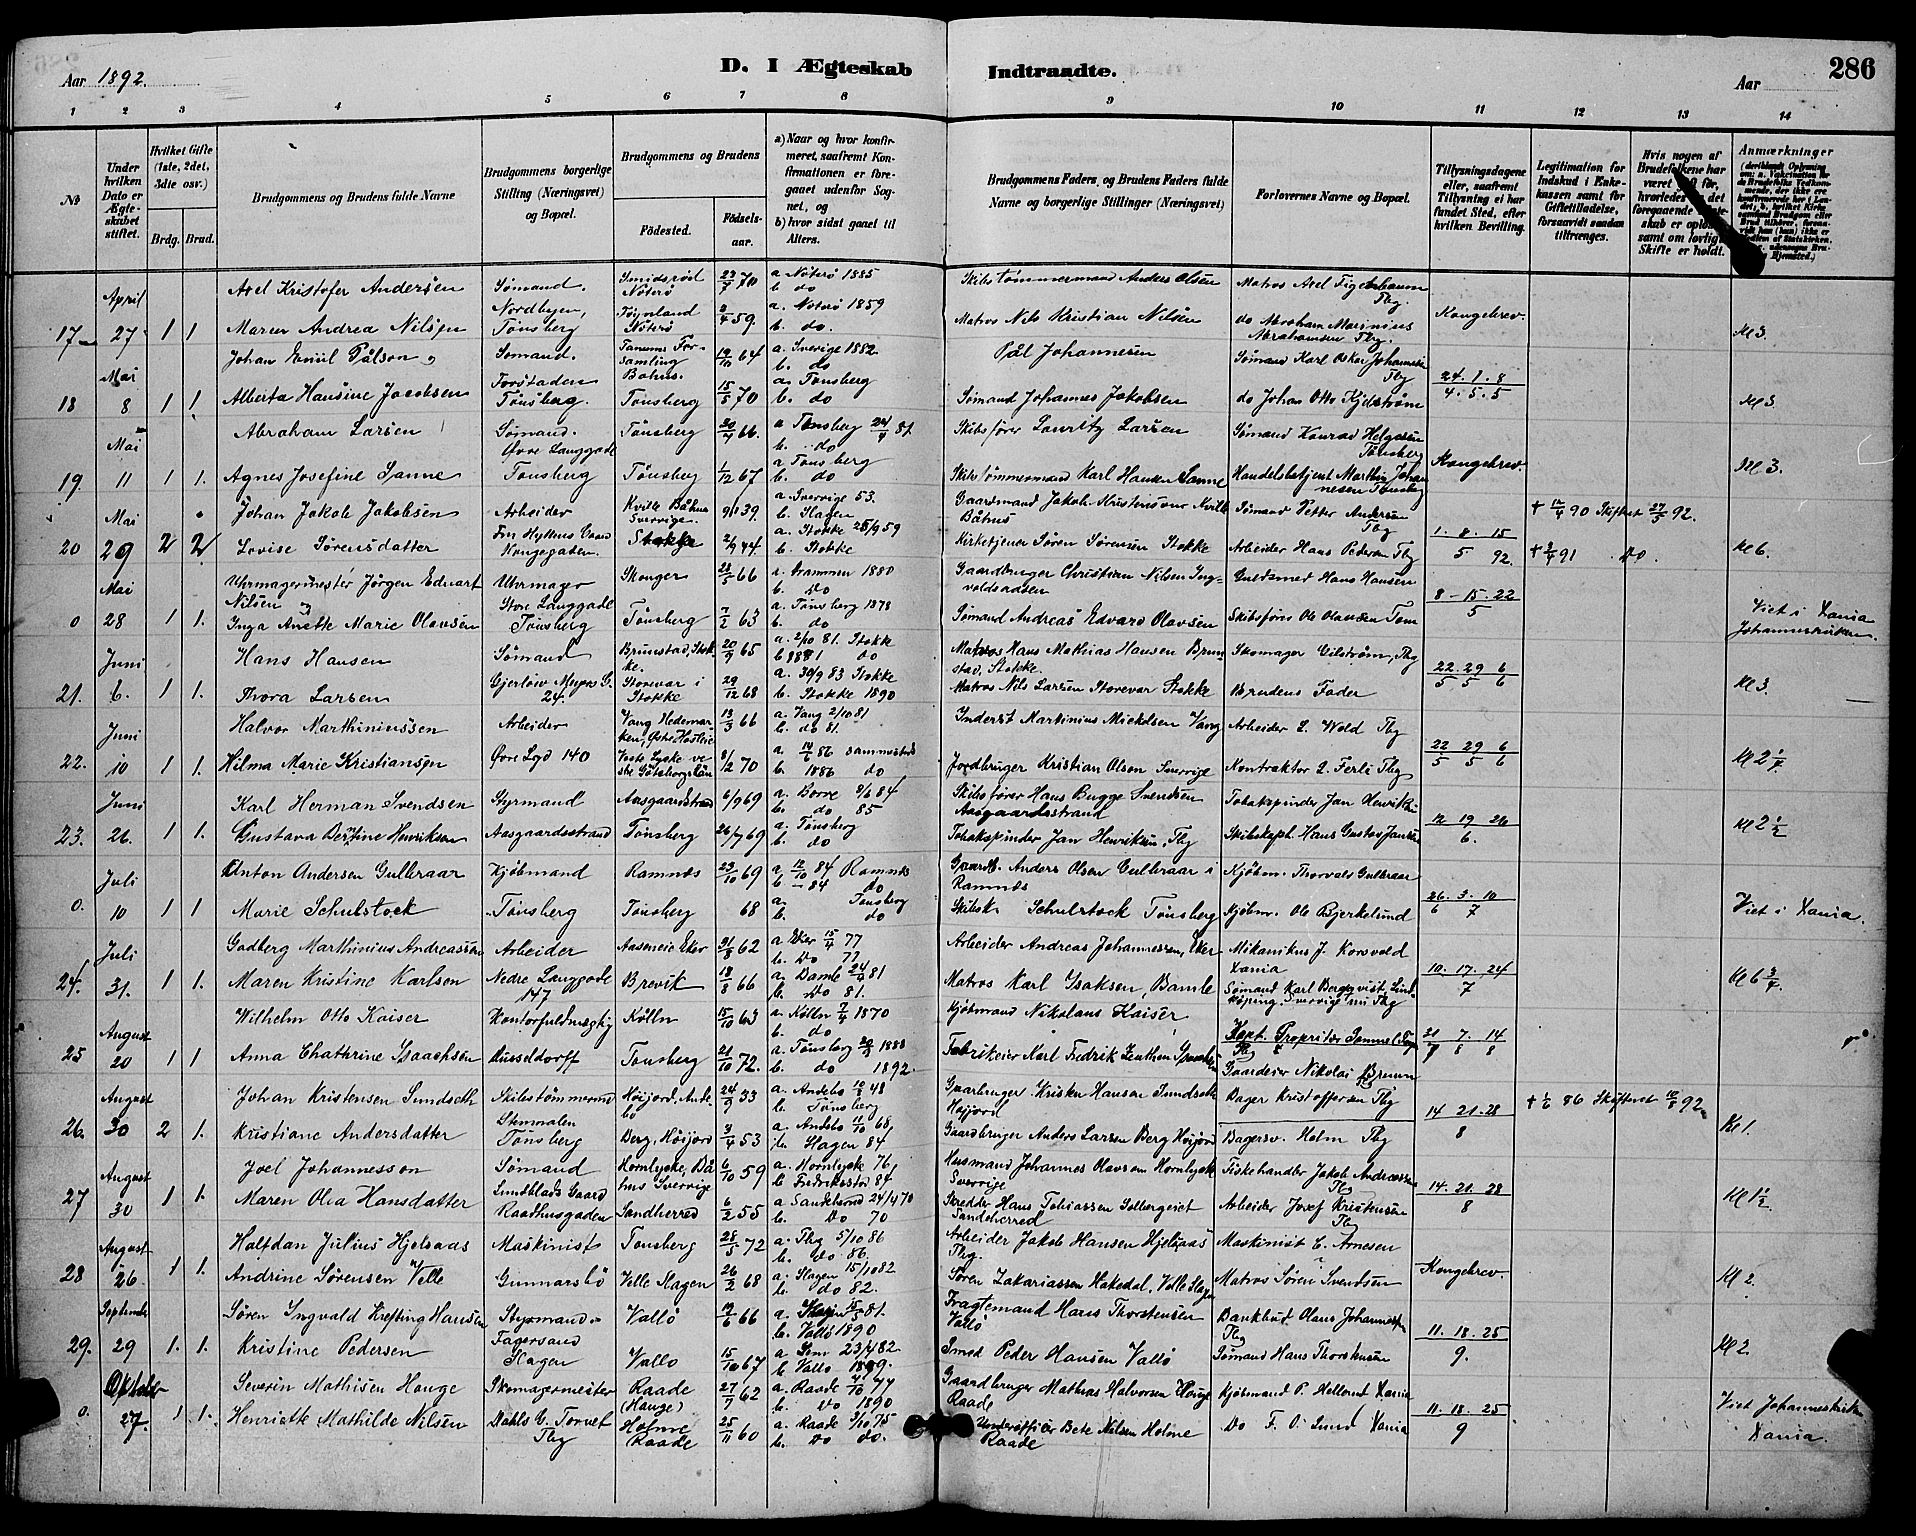 Aar 1892.
D. I Ægteskab Indtraadte.
Aar
286
1 2 3 4 5 6 7 8 9 10 11 12 13 14
No
Under hvilken Dato er Ægteskabet stiftet.
Hvilket Gifte (1ste, 2det, 3die osv.)
Brdg. Brud.
Brudgommens og Brudens fulde Navne
Brudgommens borgerlige Stilling (Næringsvei) og Bopæl.
Brudgommens og Brudens
Födested.
Födsels-aar.
a) Naar og hvor konfirmeret, saafremt Konfirmationen er foregaaet udenfor Sognet, og
b) hvor sidst gaaet til Alters.
Brudgommens Faders, og Brudens Faders fulde Navne og borgerlige Stillinger (Næringsvei)
Forlovernes Navne og Bopæl.
Tillysningsdagene eller, saafremt Tillysning ei har fundet Sted, efter hvilken Bevilling.
Legitimation for Indskud i Enkekassen samt for Giftetilladelse, forsaavidt saadan tiltrænges.
Hvis nogen af Brudefolkene har været
Anmærkninger
April
Axel Kristofer Andersen Sømand. Smidsrød Nøterö 23/7 70 a Nöterö 1885 b. do Skibstömmermand Anders Olsen Matros Axel Figenbaum Tbg.
17 27 1 1 Maren Andrea Nilsen Nordbyen, Tönsberg Töinland Nöterö 59. a. Nöterö 1859 b. do. Matros Nils Kristian Nilsen do Abraham Marinius Abrahamsen Tbg. Kongebrev Kl 3.
Mai
Johan Emil Pålson Sømand. Tanums Forsamling Bohus. 19/10 64 a. Sverige 1882. b. do Pål Johannesen Sömand Karl Oskar Johannesen Tbg
18 8 1 1 Alberta Hansine Jacobsen Forstaden Tönsberg. Tönsberg 15/5 70 a. Tönsberg b. do Sömand Johannes Jakobsen do Johan Otto Kjelström 24. 1. 8 4. 5. 5 Kl 3
Mai
Abraham Larsen Sømand. Tönsberg 20/4 66. a Tönsberg 24/4 81 b. do Skibsförer Lauritz Larsen Sømand Konrad Helgesen Tönsberg
19. 11 1 1. Agnes Josefine Sanne Övre Langgade Tönsberg Tönsberg 1/12 67 a Tönsberg b. do Skibstömmermand Karl Hansen Sanne Handelsbetjent Marthin Johannesen Tönsberg Kongebrev Kl 3.
Mai
Johan Jakob Jakobsen Arbeider Kville Båhus Sverrige. 9/1 39. a. Sverrige 53. b. Slagen Gaardmand Jakob Kristensen Kville Båhus Sömand Petter Andersen Tbg † 90 Skiftet 27/5 92.
20 29 2 2 Lovise Sørensdatter Kongegaden. Stokke 2/9 44 a. Stokke 25/9 59 b. Stokke Kirketjener Sören Sörensen Stokke Arbeider Hans Pedersen Tbg 1. 8. 15 5 92. † 91 do. Kl 6.
Mai
Uhrmagermester Jørgen Edvart Nilsen Uhrmager Skoger 23/5 66 a. Drammen 1880 b. Do Gaardbruger Christian Nilsen Guldsmed Hans Hansen
0 28 1 1. Inga Anette Marie Olavsen Store Langgade Tönsberg Tönsberg 7/2 63 a. Tönsberg 1878 b. do Sömand Andreas Edvard Olavsen Skibsförer Ole Olavsen Tøm 8 - 15. 22 5 Viet i Xania Johanneskirken.
Juni
Hans Hansen Sømand Brunstad, Stokke. 20/9 65 a. 2/10 81. Stokke b 1881 do Matros Hans Mathias Hansen Brunstad, Stokke. Skomager Vilström, Tbg
21. 6. 1 1. Thora Larsen Gjerlöw Meyers G. 24. Storevar i Stokke 29/12 68 a. 30/9 83 Stokke b. Stokke 1890 Matros Nils Larsen Storevar Stokke Brudens Fader 22. 29 6 5 5 6 Kl 3.
Juni
Halvor Marthiniussen Arbeider Vang Hedemarken, 13/3 66 a. Vang 2/10 81 b. do 81. Inderst Martinius Mickelsen Vang Arbeider L. Wold Tbg
22. 10 1 1. Hilma Marie Kristiansen Övre Lgd 140 8/12 70 a. 14/6 86 sammesteds b. 1886 do Jordbruger Kristian Olsen Sverrige Kontraktor L. Ferli Tbg 22 29 6 5 5 6 Kl 2
Juni
Karl Herman Svendsen Styrmand Aasgaardstrand 6/9 69 a. Borre 84 b. do 85 Skibsförer Hans Bugge Svendsen Aasgaardsstrand Tobakspinder Jan Henriksen
23. 26. 1 1. Gustava Bertine Henriksen Aasgaardsstrand Tönsberg 26/7 69 a. Tönsberg b. do Tobakspinder Jan Henriksen, Tbg Skibskapt. Hans Gustav Jansen 12 19 26 6. Kl 2 1/2
Juli
Anton Andersen Gulbraar Kjöbmand Ramnæs 23/10 69 a 12/10 84 Ramnæs b - 84 do Gaardb. Anders Olsen Gulbraar i Ramnæs Kjöbm. Thorvald Gulbraar
0. 10 1 1 Marie Schulstock Tönsberg Tönsberg 68 a. Tönsberg b. do Skibsk. Schulstock Tönsberg Kjöbm. Ole Bjerkelund 26. 3. 10 6 7 Viet i Xania.
Juli
Godberg Marthinius Andreassen Arbeider Aaseneie Eker 21/8 62 a Eker 15/4 77 b. Do 77 Arbeider Andreas Johannessen, Eker Mikanikus J. Korsvold Xania
24. 31. 1 1. Maren Kristine Karlsen Nedre Langgade 147 Brevik 18/8 66 a. Bamle 81 b. Do 81. Matros Karl Isaksen, Bamle Sømand Karl Bergqvist Lindköping Sverrige nu Tbg 10. 17. 24 7 Kl 6
August
Wilhelm Otto Kaiser Kontorfuldmægtig Kölln 15/10 63 a. Kölln 1870 b. do Kjöbmand Nikolaus Kaiser
25 20 1 1 Anna Chathrine Isaachsen Düsseldorff Tönsberg 21/10 72. a. Tönsberg 1888 b. do 1892. Fabrikeier Karl Fredrik Gaardeier Nikolai Bruun 21 7. 14 7 8 8
August
Johan Kristensen Sundseth Skibstömmermd Höijord, Andebo 24/9 33 a. Andebo 48 b. Tönsberg Gaarbruger Kristen Hansen Sundseth Höijord Bager Kristoffersen Tbg † 1/6 86 Skiftet 92.
26. 30 2 1. Kristiane Andersdatter Stenmalen Tönsberg Berg, Höijord 3/4 53 a. Andebo 68, b. Slagen 84 Gaardbruger Anders Larsen Berg Höijord Bagersv. Holm Tbg 14 21. 28 8 Kl 1.
August
Joel Johannesson Sømand Hornlycke, Båhus Sverrige 6/10 59 a. Hornlycke 76 b Fredriksstad 84 Husmand Johannes Olavsen Hornlyck Sverrige Fiskehandler Jakob Andreassen Tbg
27 30 1 1. Maren Olea Hansdatter Lundblads Gaard Raadhusgaden Sandherred 6/2 55 a. Sandeherred 24/4 70 b. Do 70 Skrædder Hans Tobiassen Solbergeiet Sandeherred Arbeider Josef Kristensen Tbg 14. 21. 28 8 Kl 1 1/2
August
Halfdan Julius Hjelsaas Maskinist Tonsberg 28/5 72 a. Tbg 5/10 86 b. Do 86. Arbeider Jakob Hansen Hjelsaas Tbg. Maskinist C. Arnesen
28 26. 1 1. Andrine Sørensen Velle Gunnarsbö Velle Slagen 26/2 68 a. Slagen 15/10 82 b. do 82. Sören Zakariassen Hakedal, Velle Slagen Matros Sören Svendsen Kongebrev. Kl 2.
September
Søren Yngvald Krefting Hansen Styrmand Vallö 19/6 66 a. Slagen 81. b. Vallö 1890 Fragtemand Hans Thorstensen Vallö Bankbud Olaus Johannessen Tbg
29. 29 1. 1. Kristine Pedersen Fagersand Slagen Vallö 15/10 67 a. Sem 23/4 82. b Vallö 1889. Smed Peder Hansen Vallö Sömand Hans Thorstensen 11. 18. 25 9. Kl 2.
Oktober
Severin Mathisen Hauge Skomagermester Raade (Hauge) 27/7 62 a. Raade 4/10 77 b. Do 1890 Gaardbruger Mathias Halvorsen Hauge Raade Kjöbmand P. Hellerud Xania
0. 27. 1 1. Henriette Mathilde Nilsen Dahls G. Torvet Tbg Holme Raade 25/11 60 a. Raade 3/10 75 b. Do do. Underofficier Bete Nilsen Holme Raade Do F. O. Lund Xania 11. 18. 25 9 Viet Johanneskirk Xania.